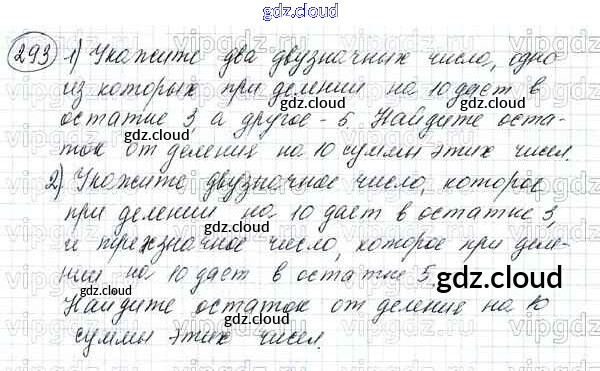 gdz.cloud
293 1) Укажите два двузначных число, одно
из которых при делении на 10 даст в
остатке 3, а другое - 5. Найдите оста-
ток от деления на 10 суммы этих чисел.
2) Укажите двузначное число, которое
при делении на 10 даст в остатке 3,
и трехзначное число, которое при деле-
нии на 10 даст в остатке 5.
Найдите остаток от деления на 10
суммы этих чисел.
gdz.cloud
gdz.cloud
gdz.cloud
gdz.cloud
gdz.cloud
gdz.cloud
gdz.cloud